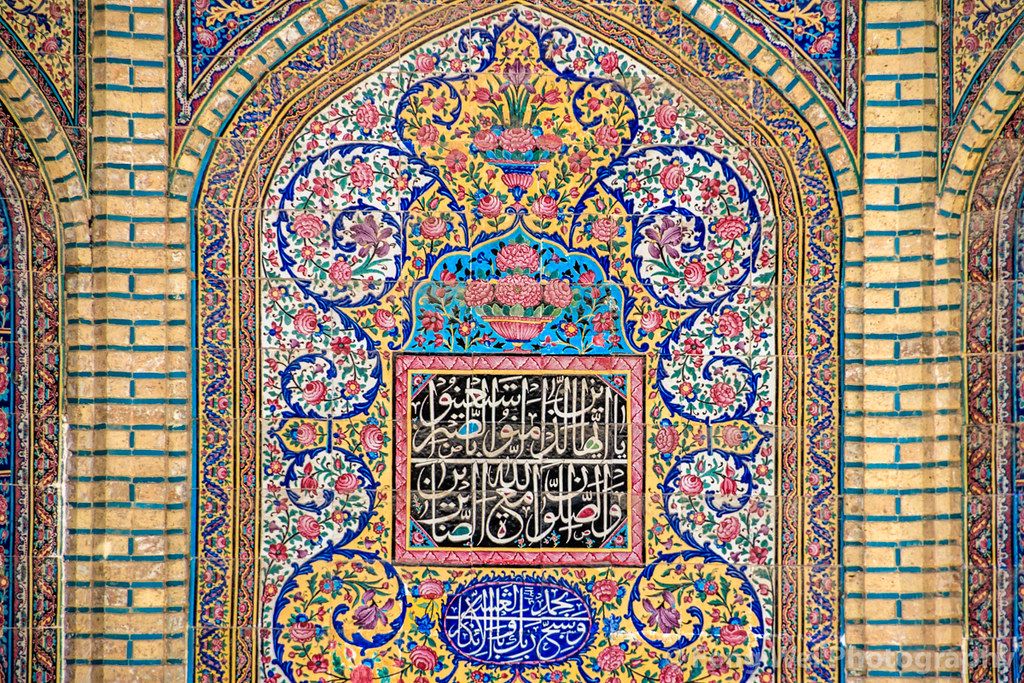 يا ايها الذين آمنوا استعينوا بالصبر
والصلوة ان الله مع الصابرين
وسبح بحمد ربك
Photography